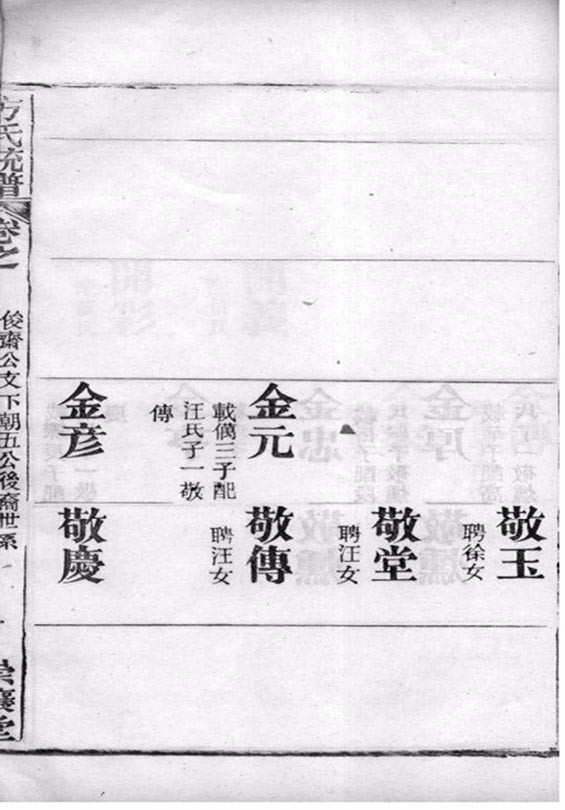 敬玉
聘徐女
敬堂
聘汪女
金元
載偶三子配
汪氏子一敬
傳
敬傳
聘汪女
金彦
敬慶
方氏統譜
卷之
俊齋公文下朝五公後裔世系
崇讓堂